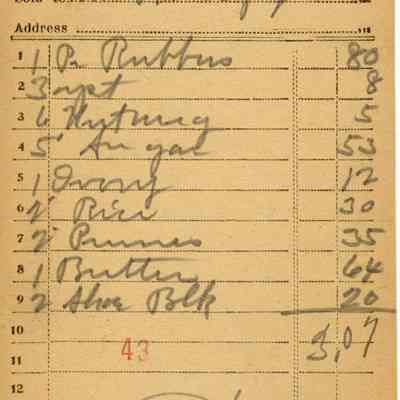 Address
1 1 Pr Rubbers 80
2 3 8
3 6 Nutmeg 5
4 5 Sugar 53
5 1 Ivory 12
6 2 Rice 30
7 2 Prunes 35
8 1 Butter 64
9 2 Shoe Blk 20
10 3,07
11 43
12